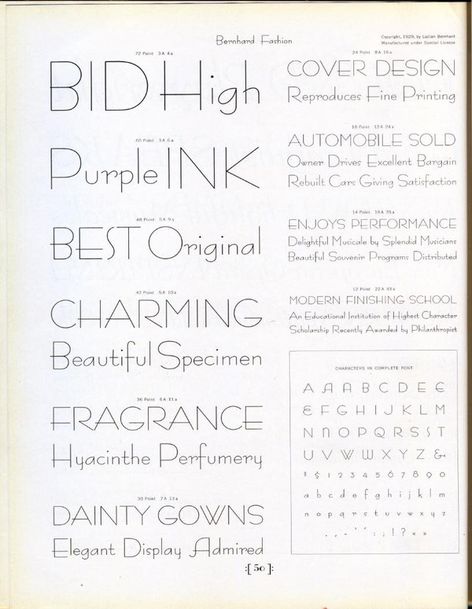 Bernhard Fashion
Copyright, 1929, by Lucian Bernhard
Manufactured under Special License
72 Point 3 A 4 a
BID High
60 Point 3 A 6 a
Purple INK
48 Point 5 A 9 a
BEST Original
42 Point 5 A 10 a
CHARMING
Beautiful Specimen
36 Point 6 A 11 a
FRAGRANCE
Hyacinthe Perfumery
30 Point 7 A 13 a
DAINTY GOWNS
Elegant Display Admired
24 Point 8 A 16 a
COVER DESIGN
Reproduces Fine Printing
18 Point 13 A 24 a
AUTOMOBILE SOLD
Owner Drives Excellent Bargain
Rebuilt Cars Giving Satisfaction
14 Point
ENJOYS PERFORMANCE
Delightful Musicale by Splendid Musicians
Beautiful Souvenir Programs Distributed
12 Point
MODERN FINISHING SCHOOL
An Educational Institution of Highest Character
Scholarship Recently Awarded by Philanthropist
CHARACTERS IN COMPLETE FONT
A A A B C D E E
E F G H I J K L M
N N O P Q R S S T
U V W W X Y Z &
$ 1 2 3 4 5 6 7 8 9 0
a b c d e f g h i j k l m
n o p q r s t u v w x y z
. , - ' ' : ; ! ? « »
:[ 50 ]: